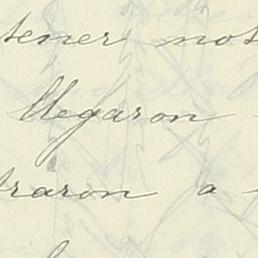 tener mot
llegaron
traron a